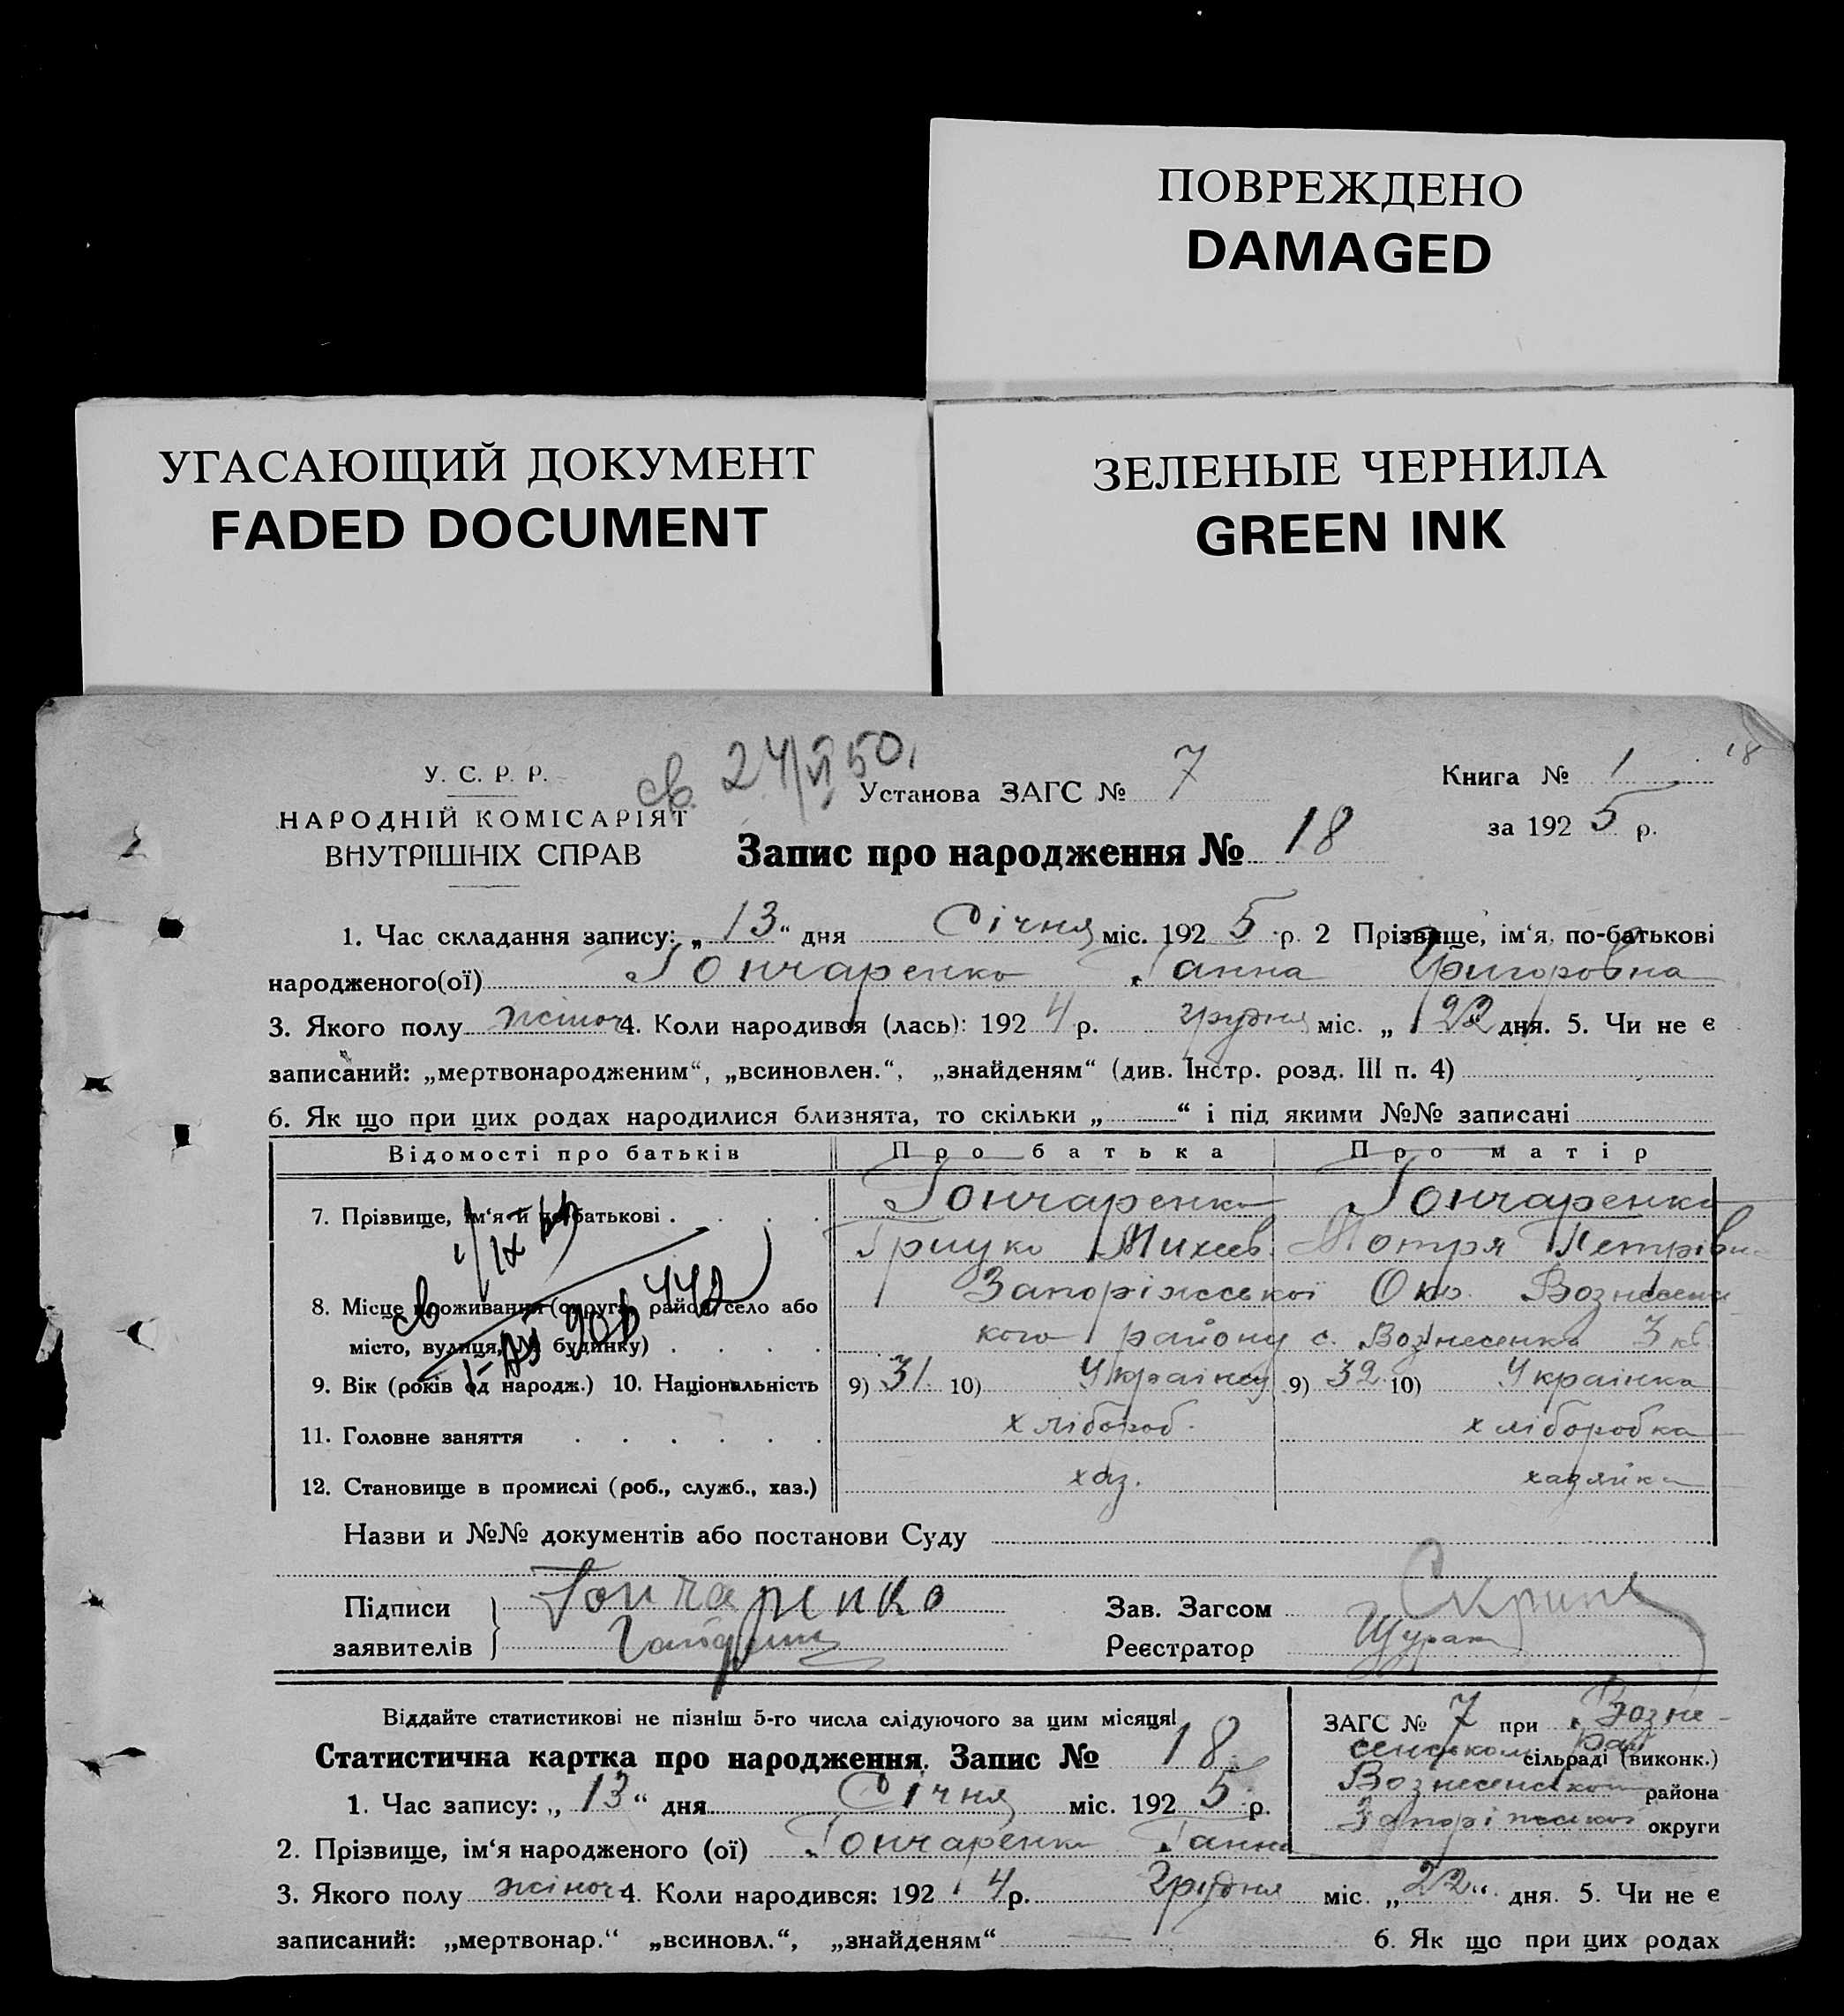 ПОВРЕЖДЕНО
DAMAGED
УГАСАЮЩИЙ ДОКУМЕНТ
FADED DOCUMENT
ЗЕЛЕНЫЕ ЧЕРНИЛА
GREEN INK
18
У. С. Р. Р.
НАРОДНІЙ КОМІСАРІЯТ
ВНУТРІШНІХ СПРАВ
св. 24/VI 50.
Установа ЗАГС № 7
Книга № 1
за 1925 р.
Запис про народження № 18
1. Час складання запису: „13“ дня Січня міс. 1925 р. 2 Прізвище, ім‘я, по-батькові
народженого(ої) Гончаренко Ганна Григоровна
3. Якого полу жіноч 4. Коли народився (лась): 1924 р. грудня міс. „22“ дня. 5. Чи не є
записаний: „мертвонародженим“, „всиновлен.“, „знайденям“ (див. Інстр. розд. III п. 4)
6. Як що при цих родах народилися близнята, то скільки „ “ і під якими №№ записані
Відомості про батьків Про батька Про матір
7. Прізвище, ім‘я й по-батькові Гончаренко Гончаренко
Грицко Михеев. Мотря Петрівна
8. Місце проживання (округа, район, село або Запоріжської Окр. Вознесенс
місто, вулиця, № будинку) кого району с. Вознесенка 3 кв.
9. Вік (років од народж.) 10. Національність 9) 31. 10) Українец 9) 32 10) Українка
11. Головне заняття хлібороб. хліборобка
12. Становище в промислі (роб., служб., хаз.) хаз. хазяйка
Назви и №№ документів або постанови Суду
Підписи Гончаренко
заявителів
Зав. Загсом
Реєстратор
Віддайте статистикові не пізніш 5-го числа слідуючого за цим місяця!
Статистична картка про народження. Запис № 18
ЗАГС № 7 при Возне-
сенськом рай сільраді (виконк.)
Вознесенского района
Запоріжської округи
1. Час запису: „13“ дня Січня міс. 1925 р.
2. Прізвище, ім‘я народженого (ої) Гончаренко Ганна
3. Якого полу жіноч 4. Коли народився: 1924 р. Грудня міс. „22“ дня. 5. Чи не є
записаний: „мертвонар.“ „всиновл.“, „знайденям“ 6. Як що при цих родах